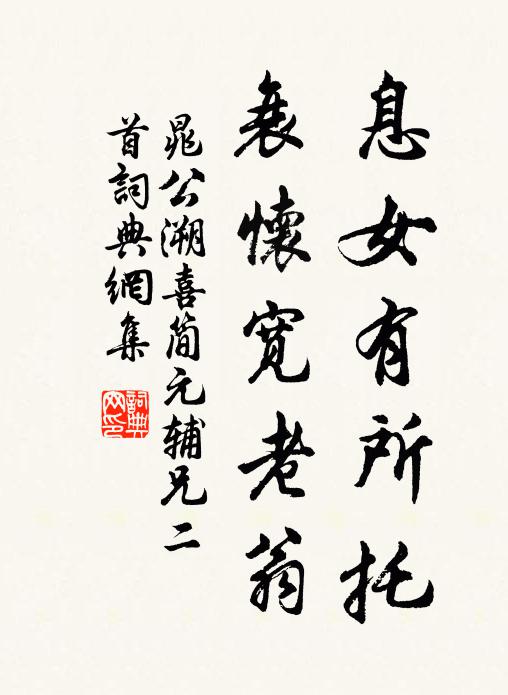 息女有所托
衰懷寬老翁
晁公溯喜簡元輔兄二
首詞典網集
詞典
网印